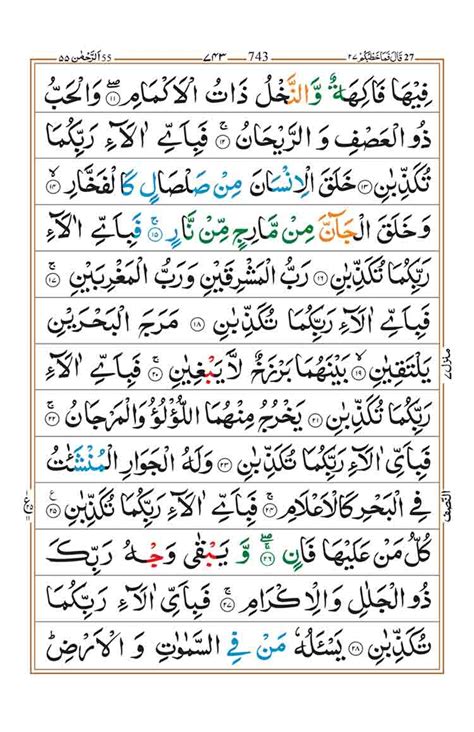 55 اَلرَّحْمٰن ٥٥ ٧٤٣ 743 27 قَالَ فَمَا خَطْبُكُمْ ٢٧
فِيْهَا فَاكِهَةٌ وَّالنَّخْلُ ذَاتُ الْاَكْمَامِ ۝١١ وَالْحَبُّ
ذُو الْعَصْفِ وَ الرَّيْحَانُ ۝١٢ فَبِاَيِّ اٰلَآءِ رَبِّكُمَا
تُكَذِّبٰنِ ۝١٣ خَلَقَ الْاِنْسَانَ مِنْ صَلْصَالٍ كَالْفَخَّارِ ۝١٤
وَ خَلَقَ الْجَآنَّ مِنْ مَّارِجٍ مِّنْ نَّارٍ ۝١٥ فَبِاَيِّ اٰلَآءِ
رَبِّكُمَا تُكَذِّبٰنِ ۝١٦ رَبُّ الْمَشْرِقَيْنِ وَرَبُّ الْمَغْرِبَيْنِ ۝١٧
فَبِاَيِّ اٰلَآءِ رَبِّكُمَا تُكَذِّبٰنِ ۝١٨ مَرَجَ الْبَحْرَيْنِ
يَلْتَقِيٰنِ ۝١٩ بَيْنَهُمَا بَرْزَخٌ لَّا يَبْغِيٰنِ ۝٢٠ فَبِاَيِّ اٰلَآءِ
رَبِّكُمَا تُكَذِّبٰنِ ۝٢١ يَخْرُجُ مِنْهُمَا اللُّؤْلُؤُ وَالْمَرْجَانُ ۝٢٢
فَبِاَيِّ اٰلَآءِ رَبِّكُمَا تُكَذِّبٰنِ ۝٢٣ وَلَهُ الْجَوَارِ الْمُنْشَئٰتُ
فِي الْبَحْرِ كَالْاَعْلَامِ ۝٢٤ فَبِاَيِّ اٰلَآءِ رَبِّكُمَا تُكَذِّبٰنِ ۝٢٥
كُلُّ مَنْ عَلَيْهَا فَانٍ ۝٢٦ وَّ يَبْقٰى وَجْهُ رَبِّكَ
ذُو الْجَلٰلِ وَالْاِكْرَامِ ۝٢٧ فَبِاَيِّ اٰلَآءِ رَبِّكُمَا
تُكَذِّبٰنِ ۝٢٨ يَسْـَٔلُهٗ مَنْ فِي السَّمٰوٰتِ وَ الْاَرْضِ
منزل ٧
النصف